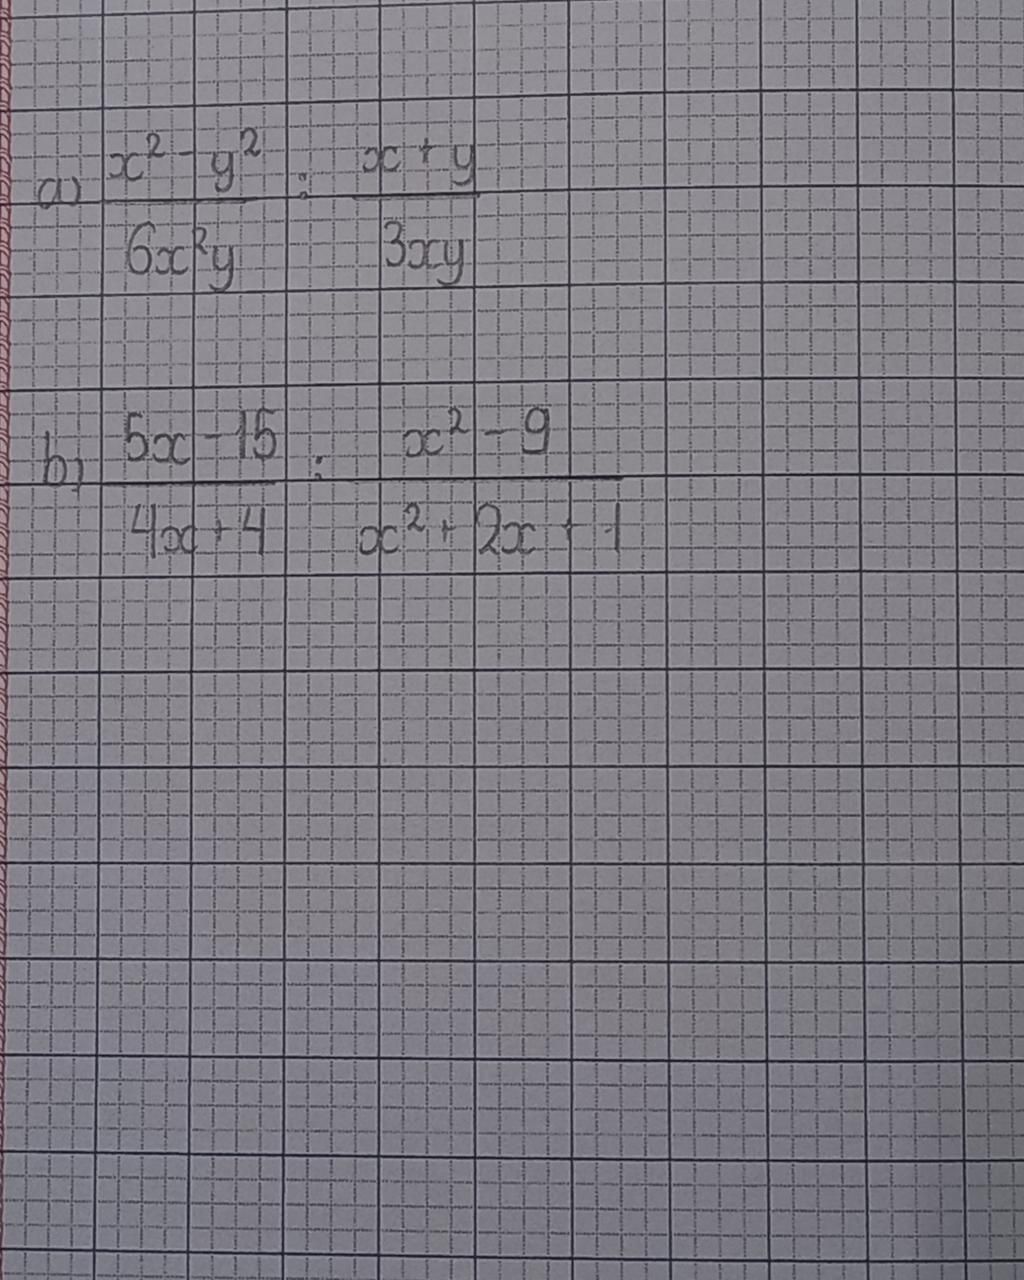 a) x² - y² / 6x²y : x + y / 3xy
b) 5x - 15 / 4x + 4 : x² - 9 / x² + 2x + 1